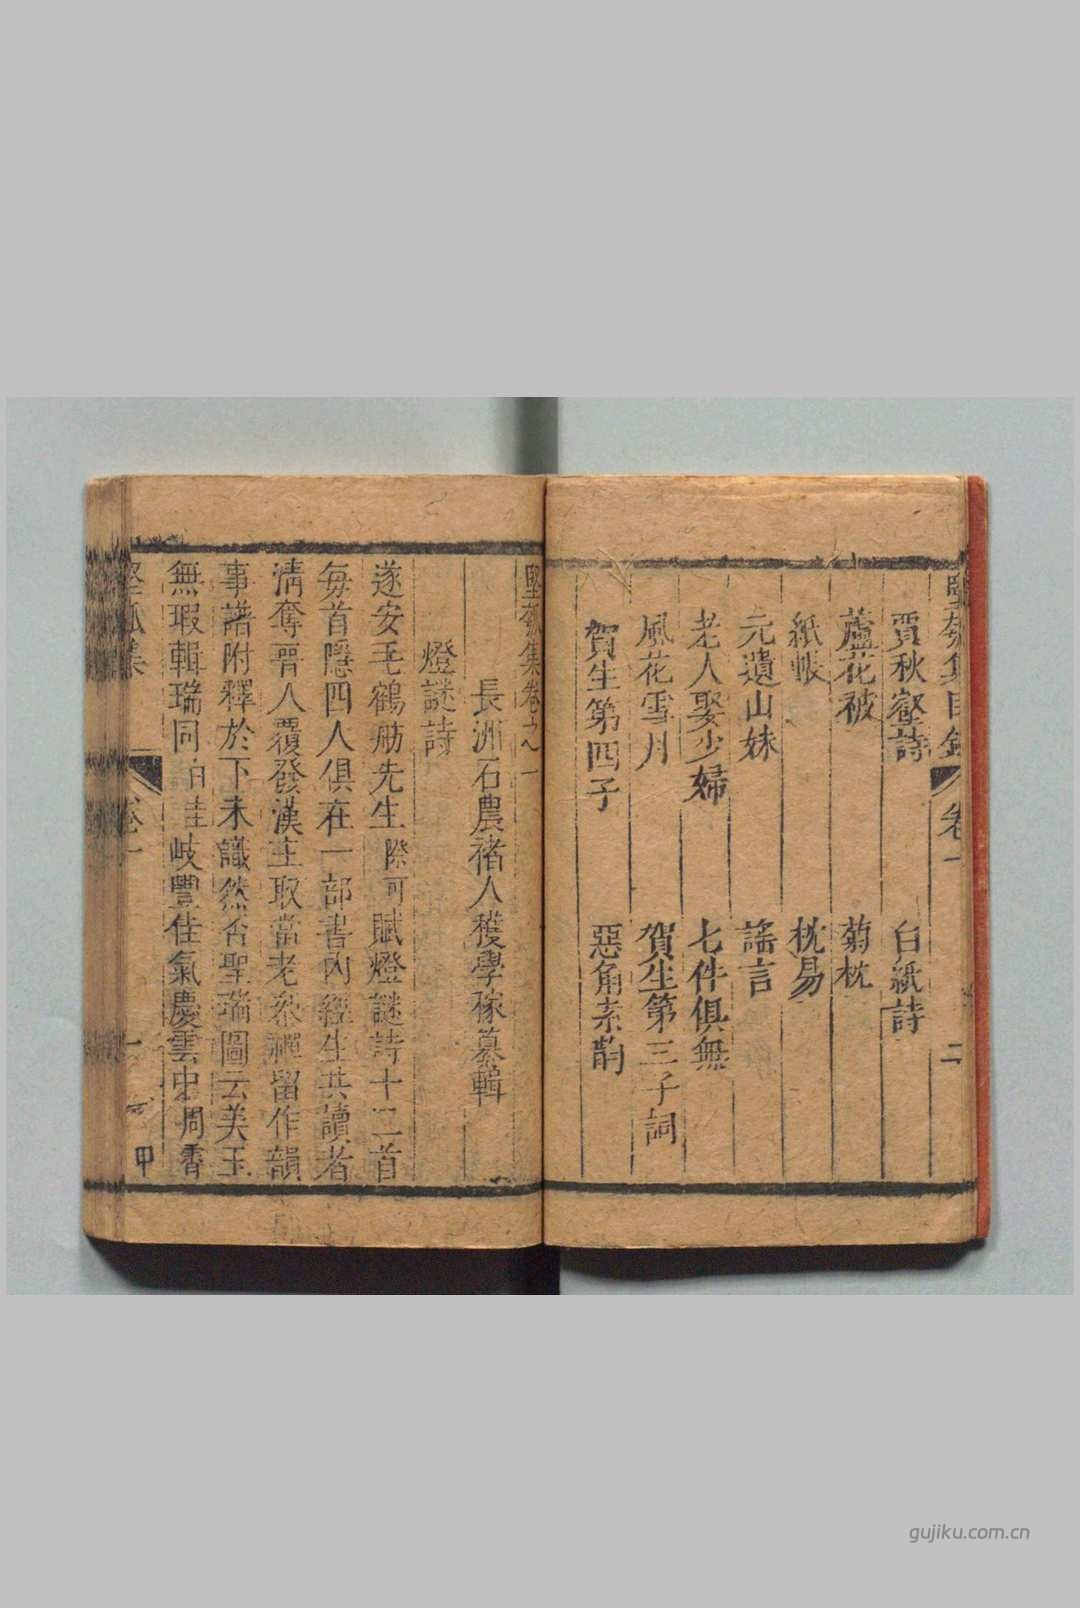 堅瓠集目錄 卷一 二
賈秋壑詩 白紙詩
蘆花被 菊枕
紙帳 枕易
元遺山妹 謠言
老人娶少婦 七件俱無
風花雪月 賀生第三子詞
賀生第四子 惡角素韵
堅瓠集卷之一
長洲石農褚人穫學稼纂輯
燈謎詩
遂安毛鶴舫先生際可賦燈謎詩十二首
每首隱四人俱在一部書內經生共讀者
清奪晉人覆發漢庄取當老衲禪留作韻
事譜附釋於下未識然否聖瑞圖云美玉
無瑕輯瑞同 桂岐豐佳氣慶雲中周霄
堅瓠集 卷一 一 甲
gujiku.com.cn